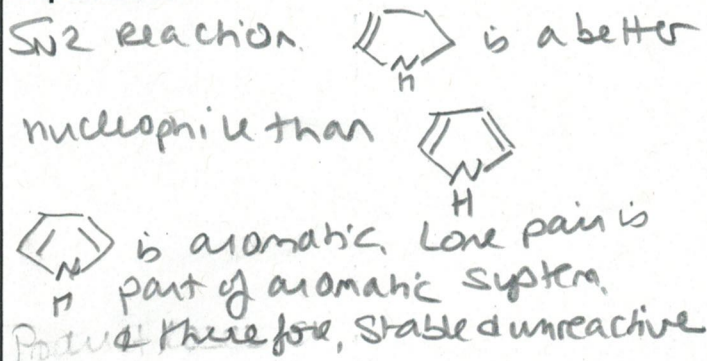 SN2 reaction. N H is a better
nucleophile than N H
N H is aromatic. Lone pair is
part of aromatic system.
& therefore, stable & unreactive